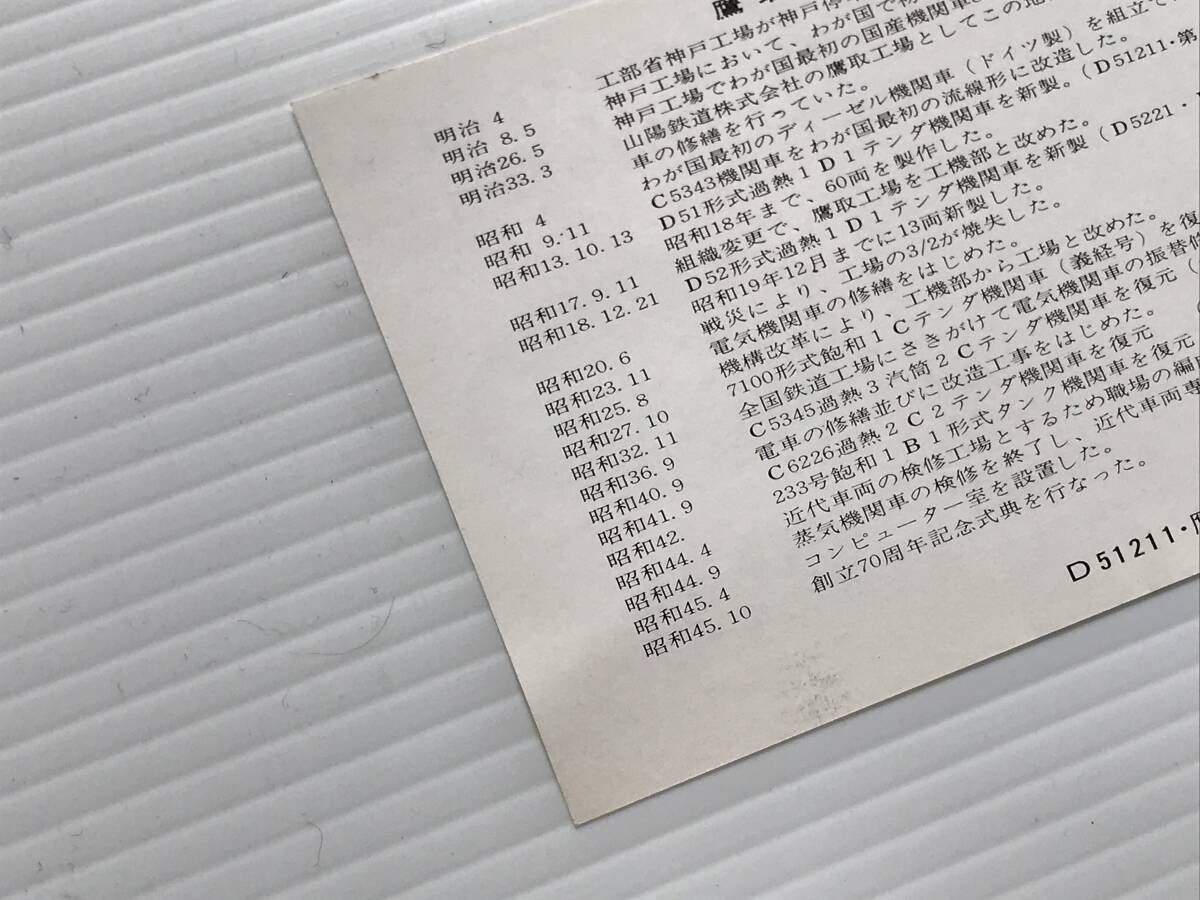 鷹
明治 4 工部省神戸工場が神戸停車
明治 8.5 神戸工場において、わが国で初
明治26.5 神戸工場でわが国最初の国産機関車
明治33.3 山陽鉄道株式会社の鷹取工場としてこの地
車の修繕を行っていた。
昭和 4 わが国最初のディーゼル機関車(ドイツ製)を組立て
昭和 9.11 C5343機関車をわが国最初の流線形に改造した。
昭和13.10.13 D51形式過熱1D1テンダ機関車を新製。(D51211・第
昭和18年まで、60両を製作した。
昭和17.9.11 組織変更で、鷹取工場を工機部と改めた。
昭和18.12.21 D52形式過熱1D1テンダ機関車を新製(D5221・
昭和19年12月までに13両新製した。
昭和20.6 戦災により、工場の3/2が焼失した。
昭和23.11 電気機関車の修繕をはじめた。
昭和25.8 機構改革により、工機部から工場と改めた。
昭和27.10 7100形式飽和1Cテンダ機関車(義経号)を復
昭和32.11 全国鉄道工場にさきがけて電気機関車の振替検
昭和36.9 C5345過熱3汽筒2Cテンダ機関車を復元(
昭和40.9 電車の修繕並びに改造工事をはじめた。
昭和41.9 C6226過熱2C2テンダ機関車を復元
昭和42. 233号飽和1B1形式タンク機関車を復元
昭和44.4 近代車両の検修工場とするため職場の編
昭和44.9 蒸気機関車の検修を終了し、近代車両専
昭和45.4 コンピューター室を設置した。
昭和45.10 創立70周年記念式典を行なった。
D51211・